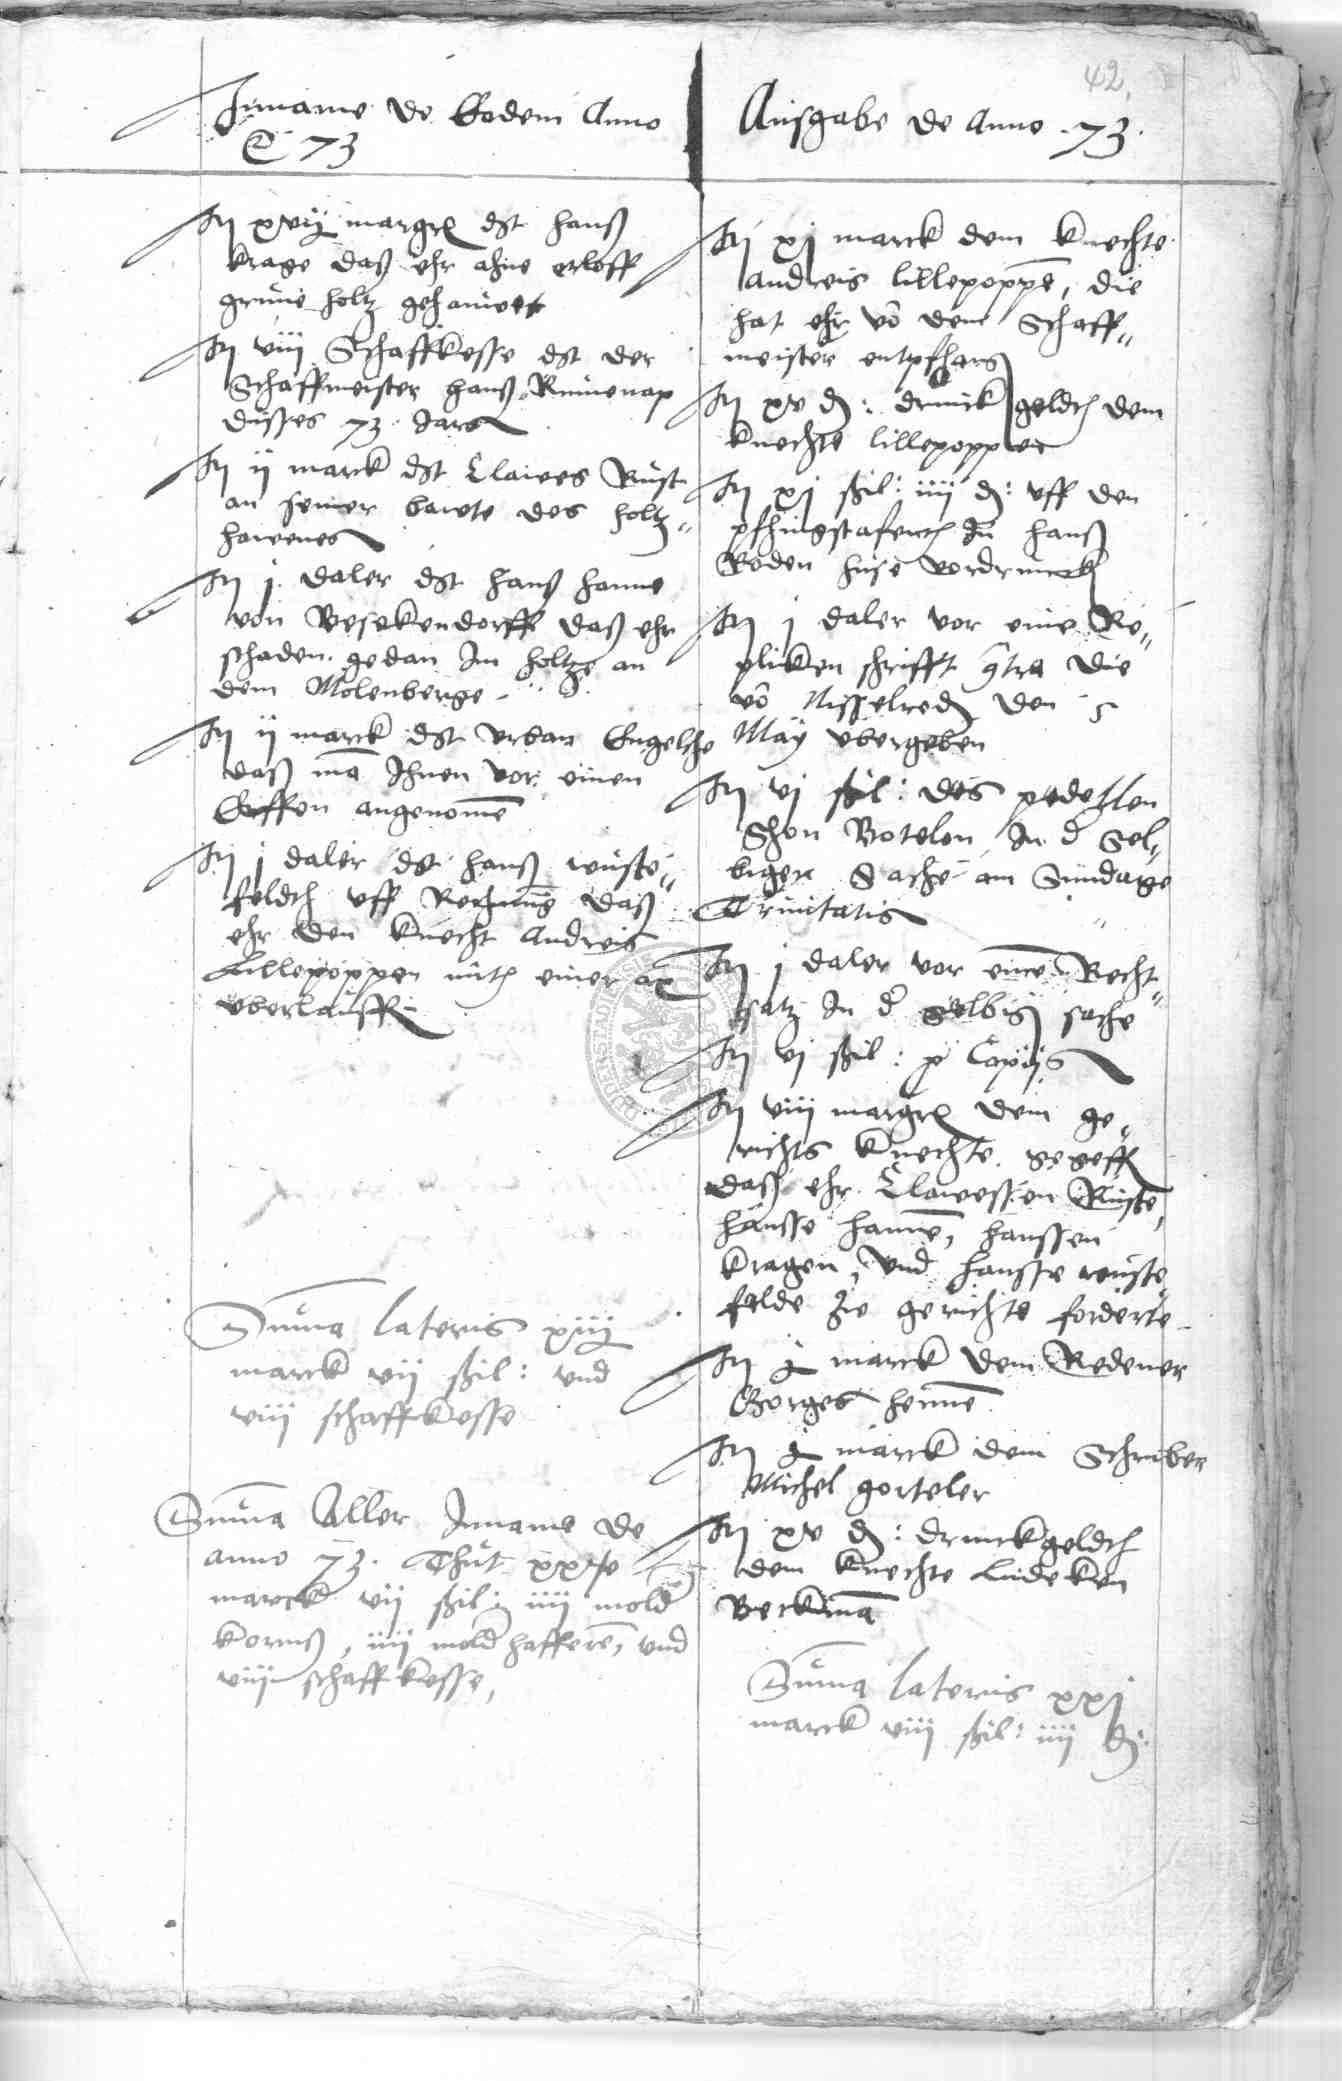 42.
Inname de Eodem Anno
73
Ausgabe de Anno 73.
It xvij margr dt Hanß
Krage daß ehr ahne erloff
grune holtz gehauwet
It viij Schaffkesse dt der
Schaffmeister Hanß Ruwenap
dusses 73. Jars
It ij marck dt Clawes Rust
an seiner bawte des holtz"
hawenes
It j daler dt Hanß Hanne
von Besekendorff daß ehr
schaden gedan Im holtze an
dem Molenberge
It ij marck dt Urban Engelche
daß ma Ihnen vor einen
angenome
It j daler dt Hanß wuste"
feldt uff Rechnung daß
ehr den Knecht Andreis
Lillepoppen mit einer ax
uberlauff
Suma lateris xiij
marck vij ßil: und
viij schaffkesse
Suma Aller Inname de
anno 73. Thut
marck vij ßil: iiij mold
Korns, iiij mold hafferen, und
viij schaffkesse,
It xj marck dem Knechte
Andreis lillepoppe, die
hat ehr vo dem Schaff"
meister entpfhang
It xv d: drinckgeldt dem
Knechte lillepoppen
It xj ßil: iiij d: uff den
pfhingstafent In Hanß
Roden huse vordrunck
It j daler vor eine Re"
pliken schrifft die
vo Nisselred den 5
May ubergeben
It vj ßil: des pedellen
Botelon In d Sel"
bigen Sache am Sundage
Trinitatis
It j daler vor eine Recht"
satz In d selbig sache
It vj ßil: p Copijs
It viij margr dem ge"
richts Knechte gegeff
daß ehr Clawessen Ruste,
Hansse Hanne, Hanssen
Kragen, und Hansse wuste
felde zu gerichte forderte
It j marck dem Redener
Gorges Henne
It j marck dem Schriber
Michel gorteler
It xv d: drinckgeldt
dem Knechte Ludeken
Berkma
Suma lateris xxj
marck viij ßil: iiij d: